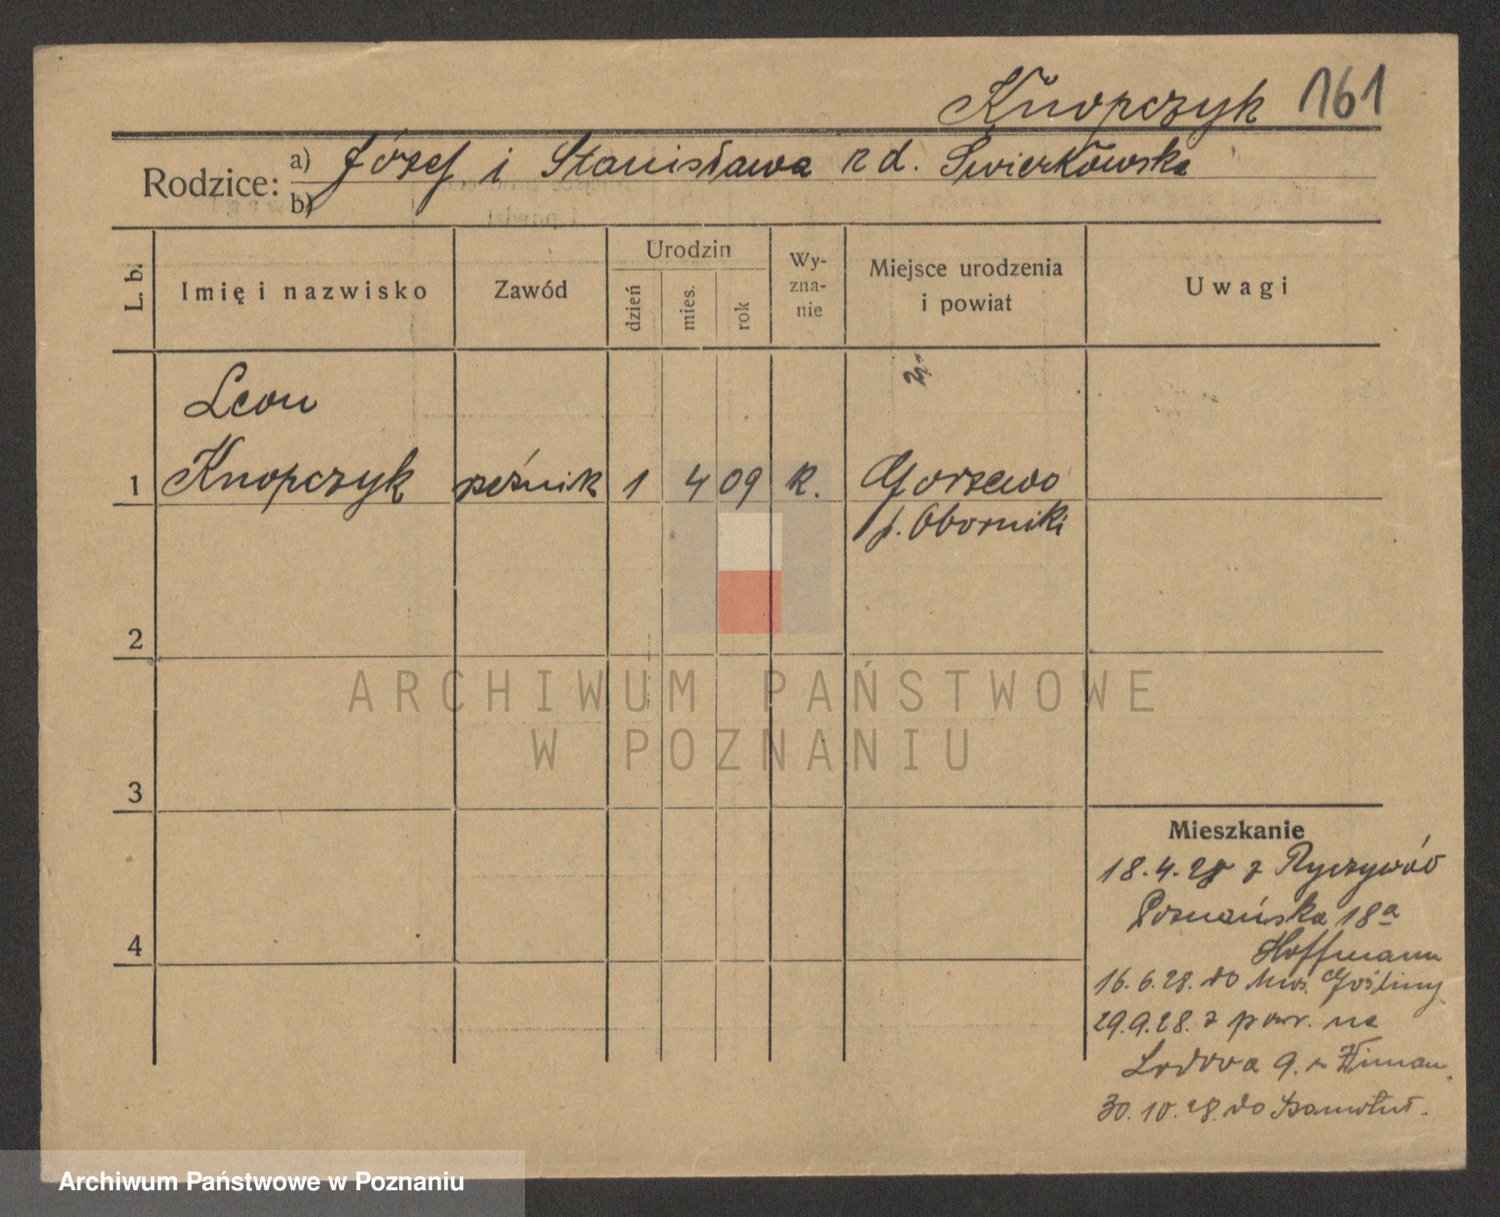 Knopczyk 161
Rodzice: a) Józef i Stanisława zd. Świerkowska
b)
L. b.
Imię i nazwisko
Zawód
Urodzin
dzień
mies.
rok
Wy-
zna-
nie
Miejsce urodzenia
i powiat
Uwagi
Leon
1 Knopczyk rzeźnik 1 4 09 k. Gorzewo
p. Oborniki
2
ARCHIWUM PAŃSTWOWE
W POZNANIU
3
4
Mieszkanie
18.4.28 z Ryczywół
Poznańska 18a
Hoffmann
16.6.28. do Mur. Gośliny
29.9.28. z powr. na
Lodowa 9.
30.10.28. do Szamotuł.
Archiwum Państwowe w Poznaniu